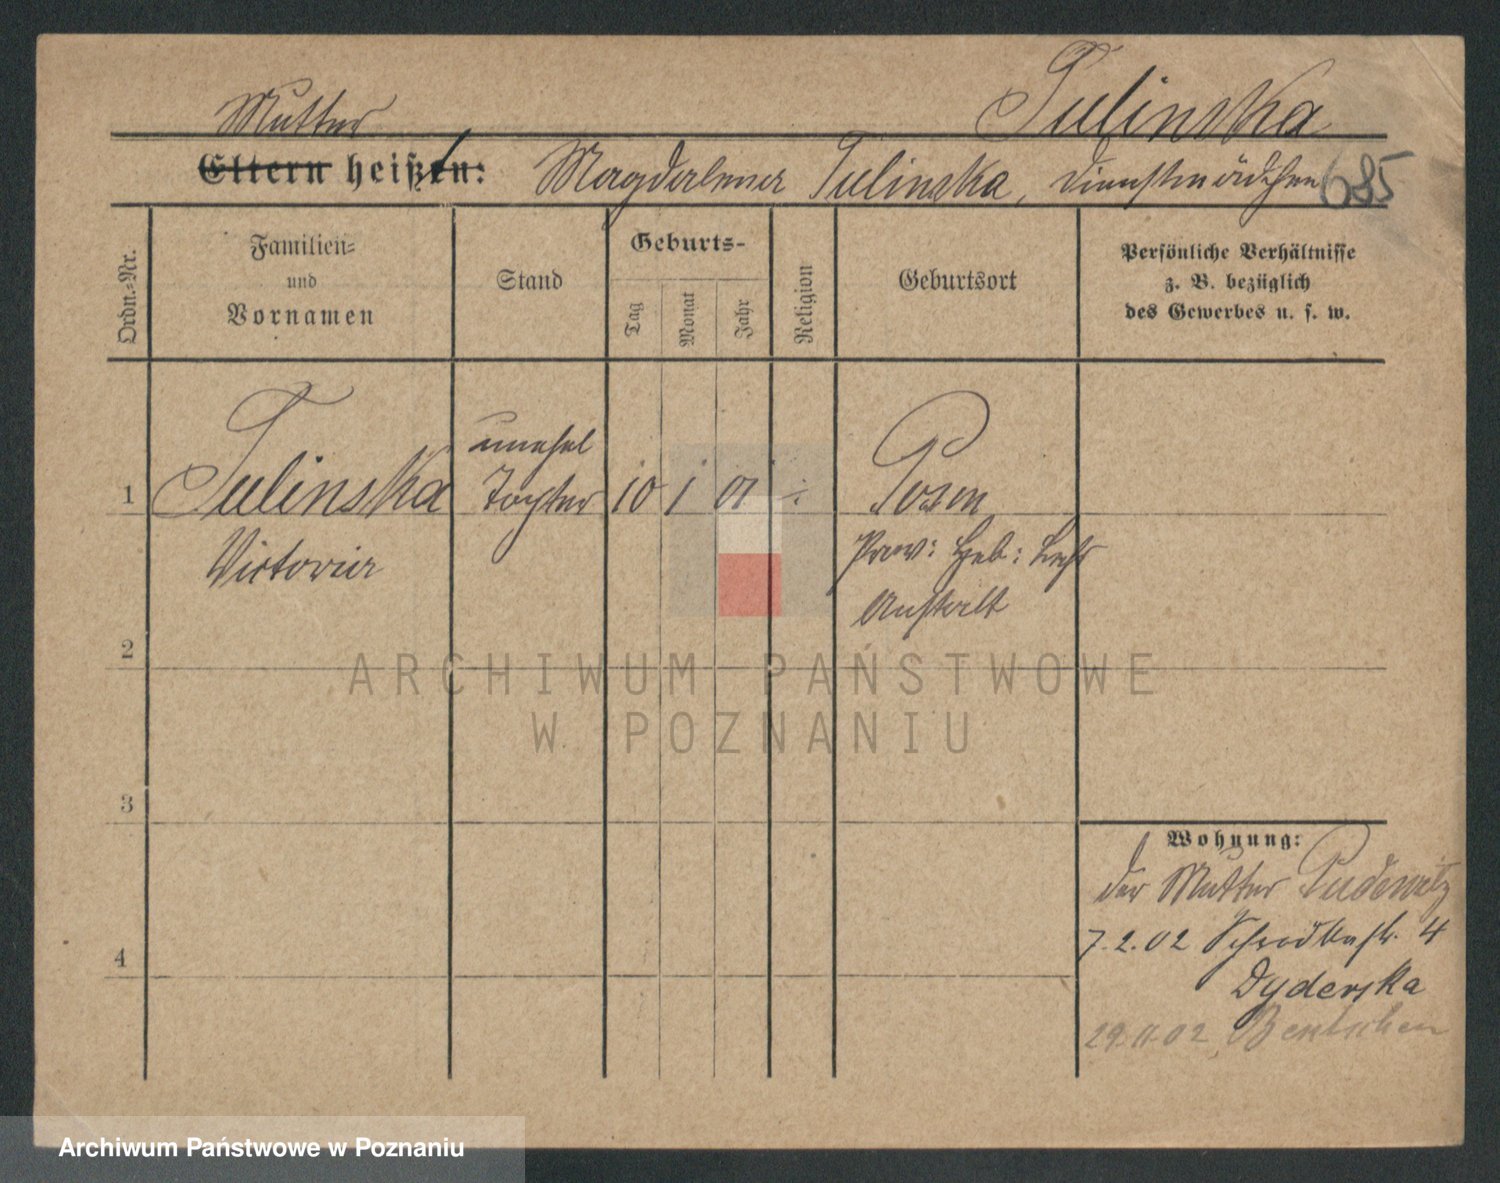 Tulinska
Mutter
Eltern heißen: Magdalena Tulinska, Dienstmädchen 685
Ordn.-Nr.
Familien-
und
Vornamen
Stand
Geburts-
Tag
Monat
Jahr
Religion
Geburtsort
Persönliche Verhältnisse
z. B. bezüglich
des Gewerbes u. s. w.
1 Tulinska unehel Tochter 10 1 01 Posen
Victoria Prov: Heb: Lehr
Anstalt
2
ARCHIWUM PAŃSTWOWE
W POZNANIU
3
Wohnung:
der Mutter Pudewitz
7.2.02 Schrodkastr. 4
4
Dyderska
29.11.02 Bentschen
Archiwum Państwowe w Poznaniu